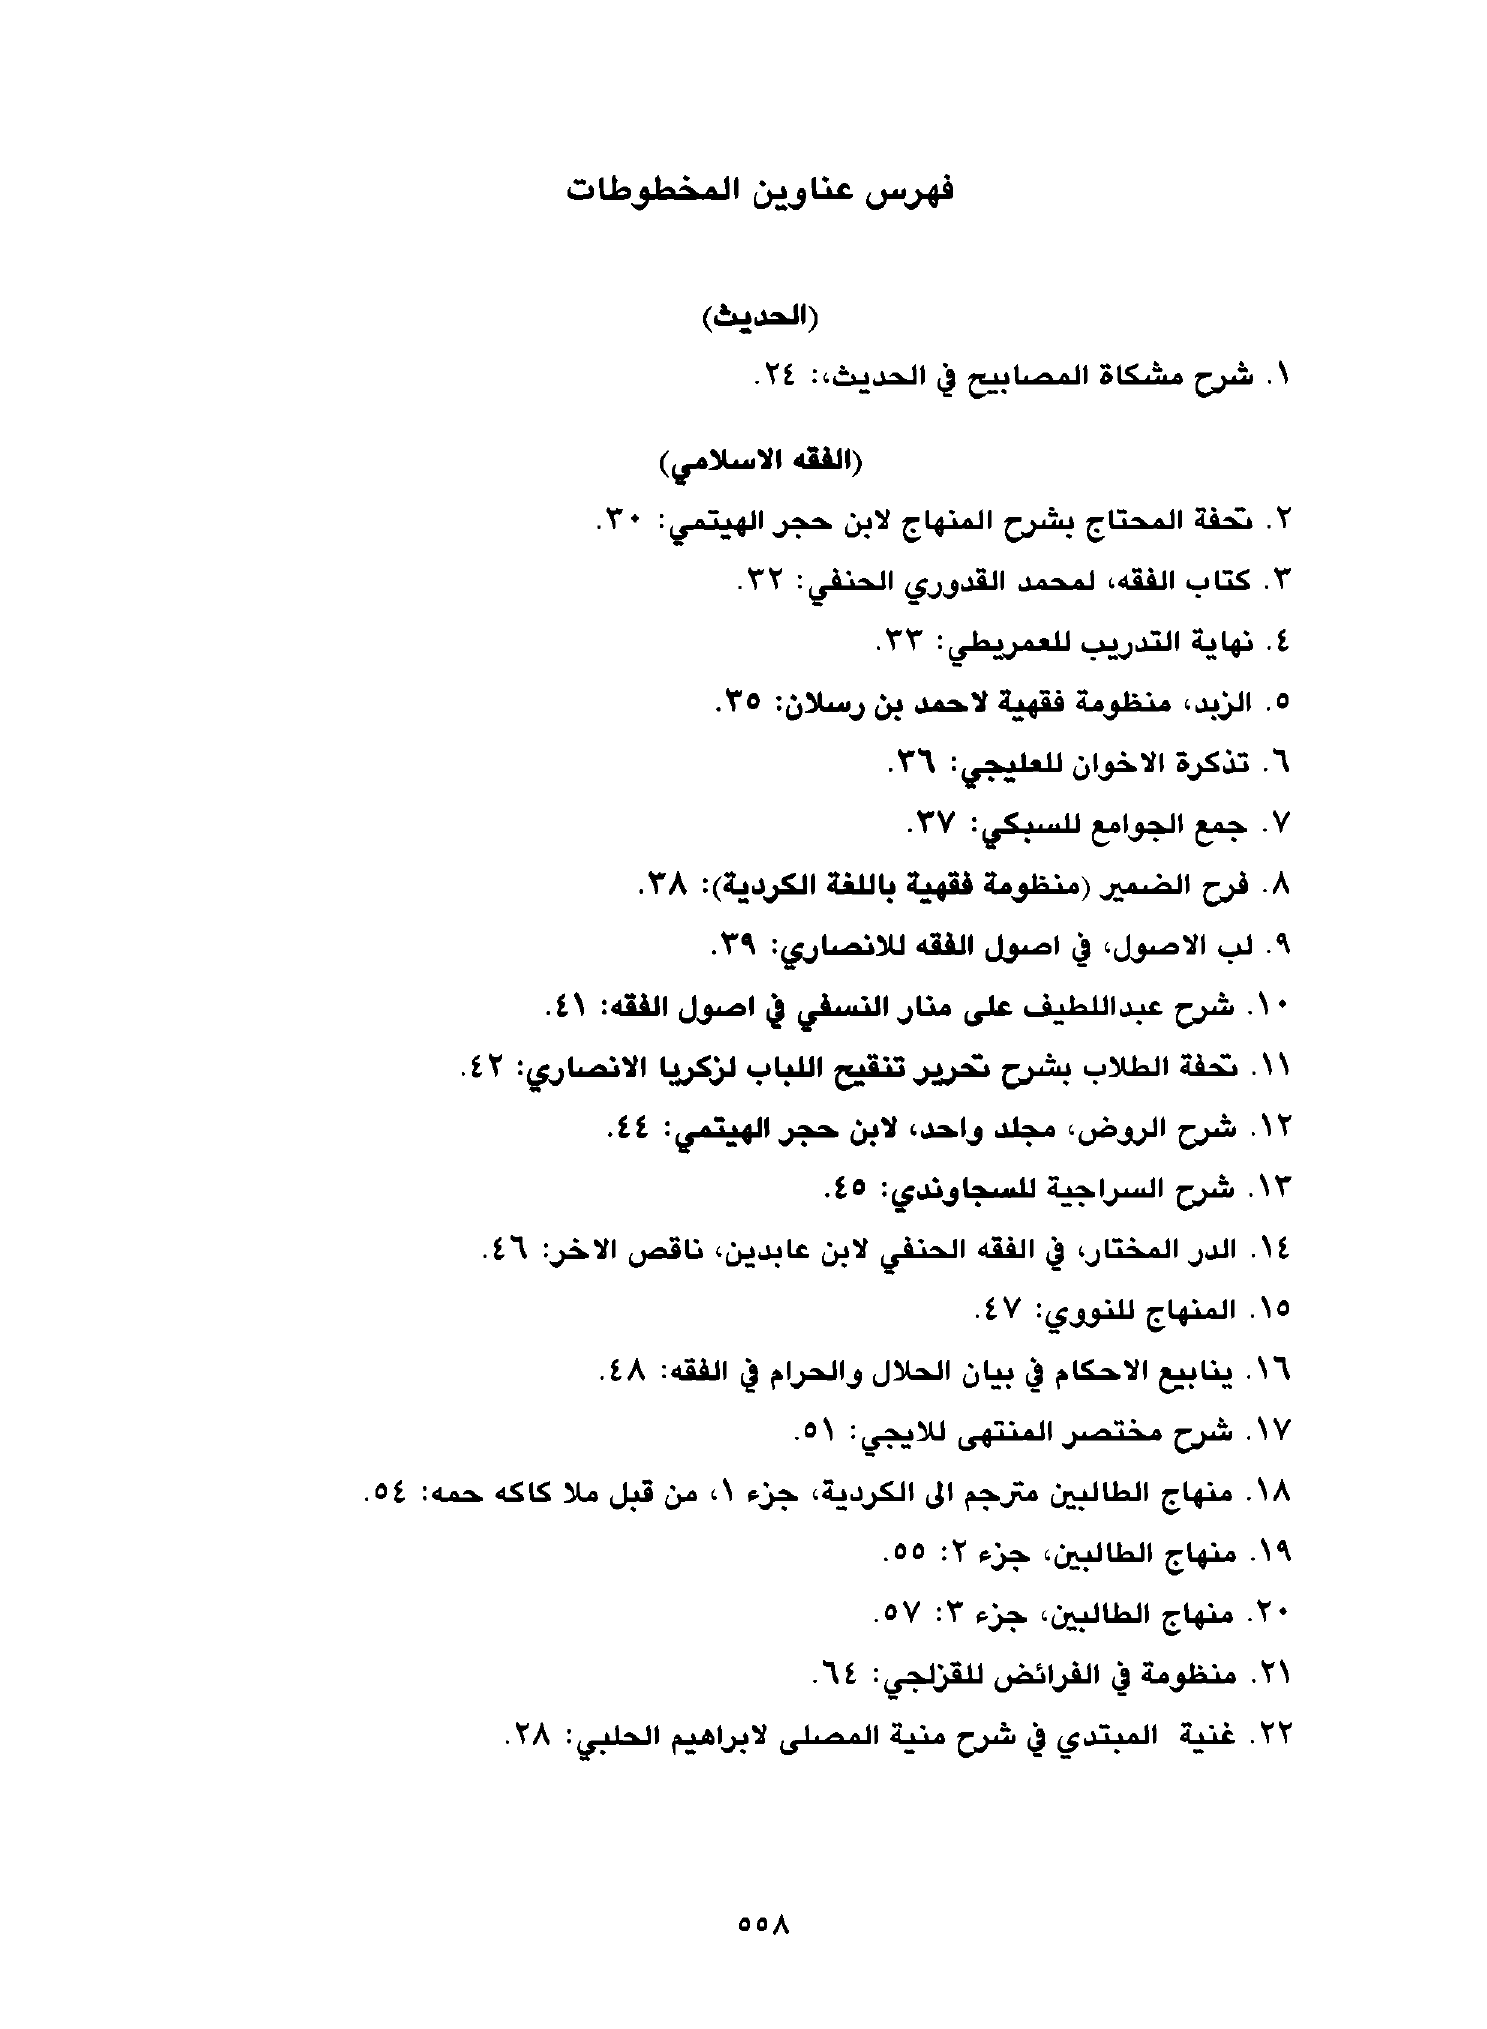 فهرس عناوين المخطوطات
(الحديث)
١. شرح مشكاة المصابيح في الحديث،: ٢٤.
(الفقه الاسلامي)
٢. تحفة المحتاج بشرح المنهاج لابن حجر الهيتمي: ٣٠.
٣. كتاب الفقه، لمحمد القدوري الحنفي: ٣٢.
٤. نهاية التدريب للعمريطي: ٣٣.
٥. الزبد، منظومة فقهية لاحمد بن رسلان: ٣٥.
٦. تذكرة الاخوان للعليجي: ٣٦.
٧. جمع الجوامع للسبكي: ٣٧.
٨. فرح الضمير (منظومة فقهية باللغة الكردية): ٣٨.
٩. لب الاصول، في اصول الفقه للانصاري: ٣٩.
١٠. شرح عبداللطيف على منار النسفي في اصول الفقه: ٤١.
١١. تحفة الطلاب بشرح تحرير تنقيح اللباب لزكريا الانصاري: ٤٢.
١٢. شرح الروض، مجلد واحد، لابن حجر الهيتمي: ٤٤.
١٣. شرح السراجية للسجاوندي: ٤٥.
١٤. الدر المختار، في الفقه الحنفي لابن عابدين، ناقص الاخر: ٤٦.
١٥. المنهاج للنووي: ٤٧.
١٦. ينابيع الاحكام في بيان الحلال والحرام في الفقه: ٤٨.
١٧. شرح مختصر المنتهى للايجي: ٥١.
١٨. منهاج الطالبين مترجم الى الكردية، جزء ١، من قبل ملا كاكه حمه: ٥٤.
١٩. منهاج الطالبين، جزء ٢: ٥٥.
٢٠. منهاج الطالبين، جزء ٣: ٥٧.
٢١. منظومة في الفرائض للقزلجي: ٦٤.
٢٢. غنية المبتدي في شرح منية المصلى لابراهيم الحلبي: ٢٨.
٥٥٨